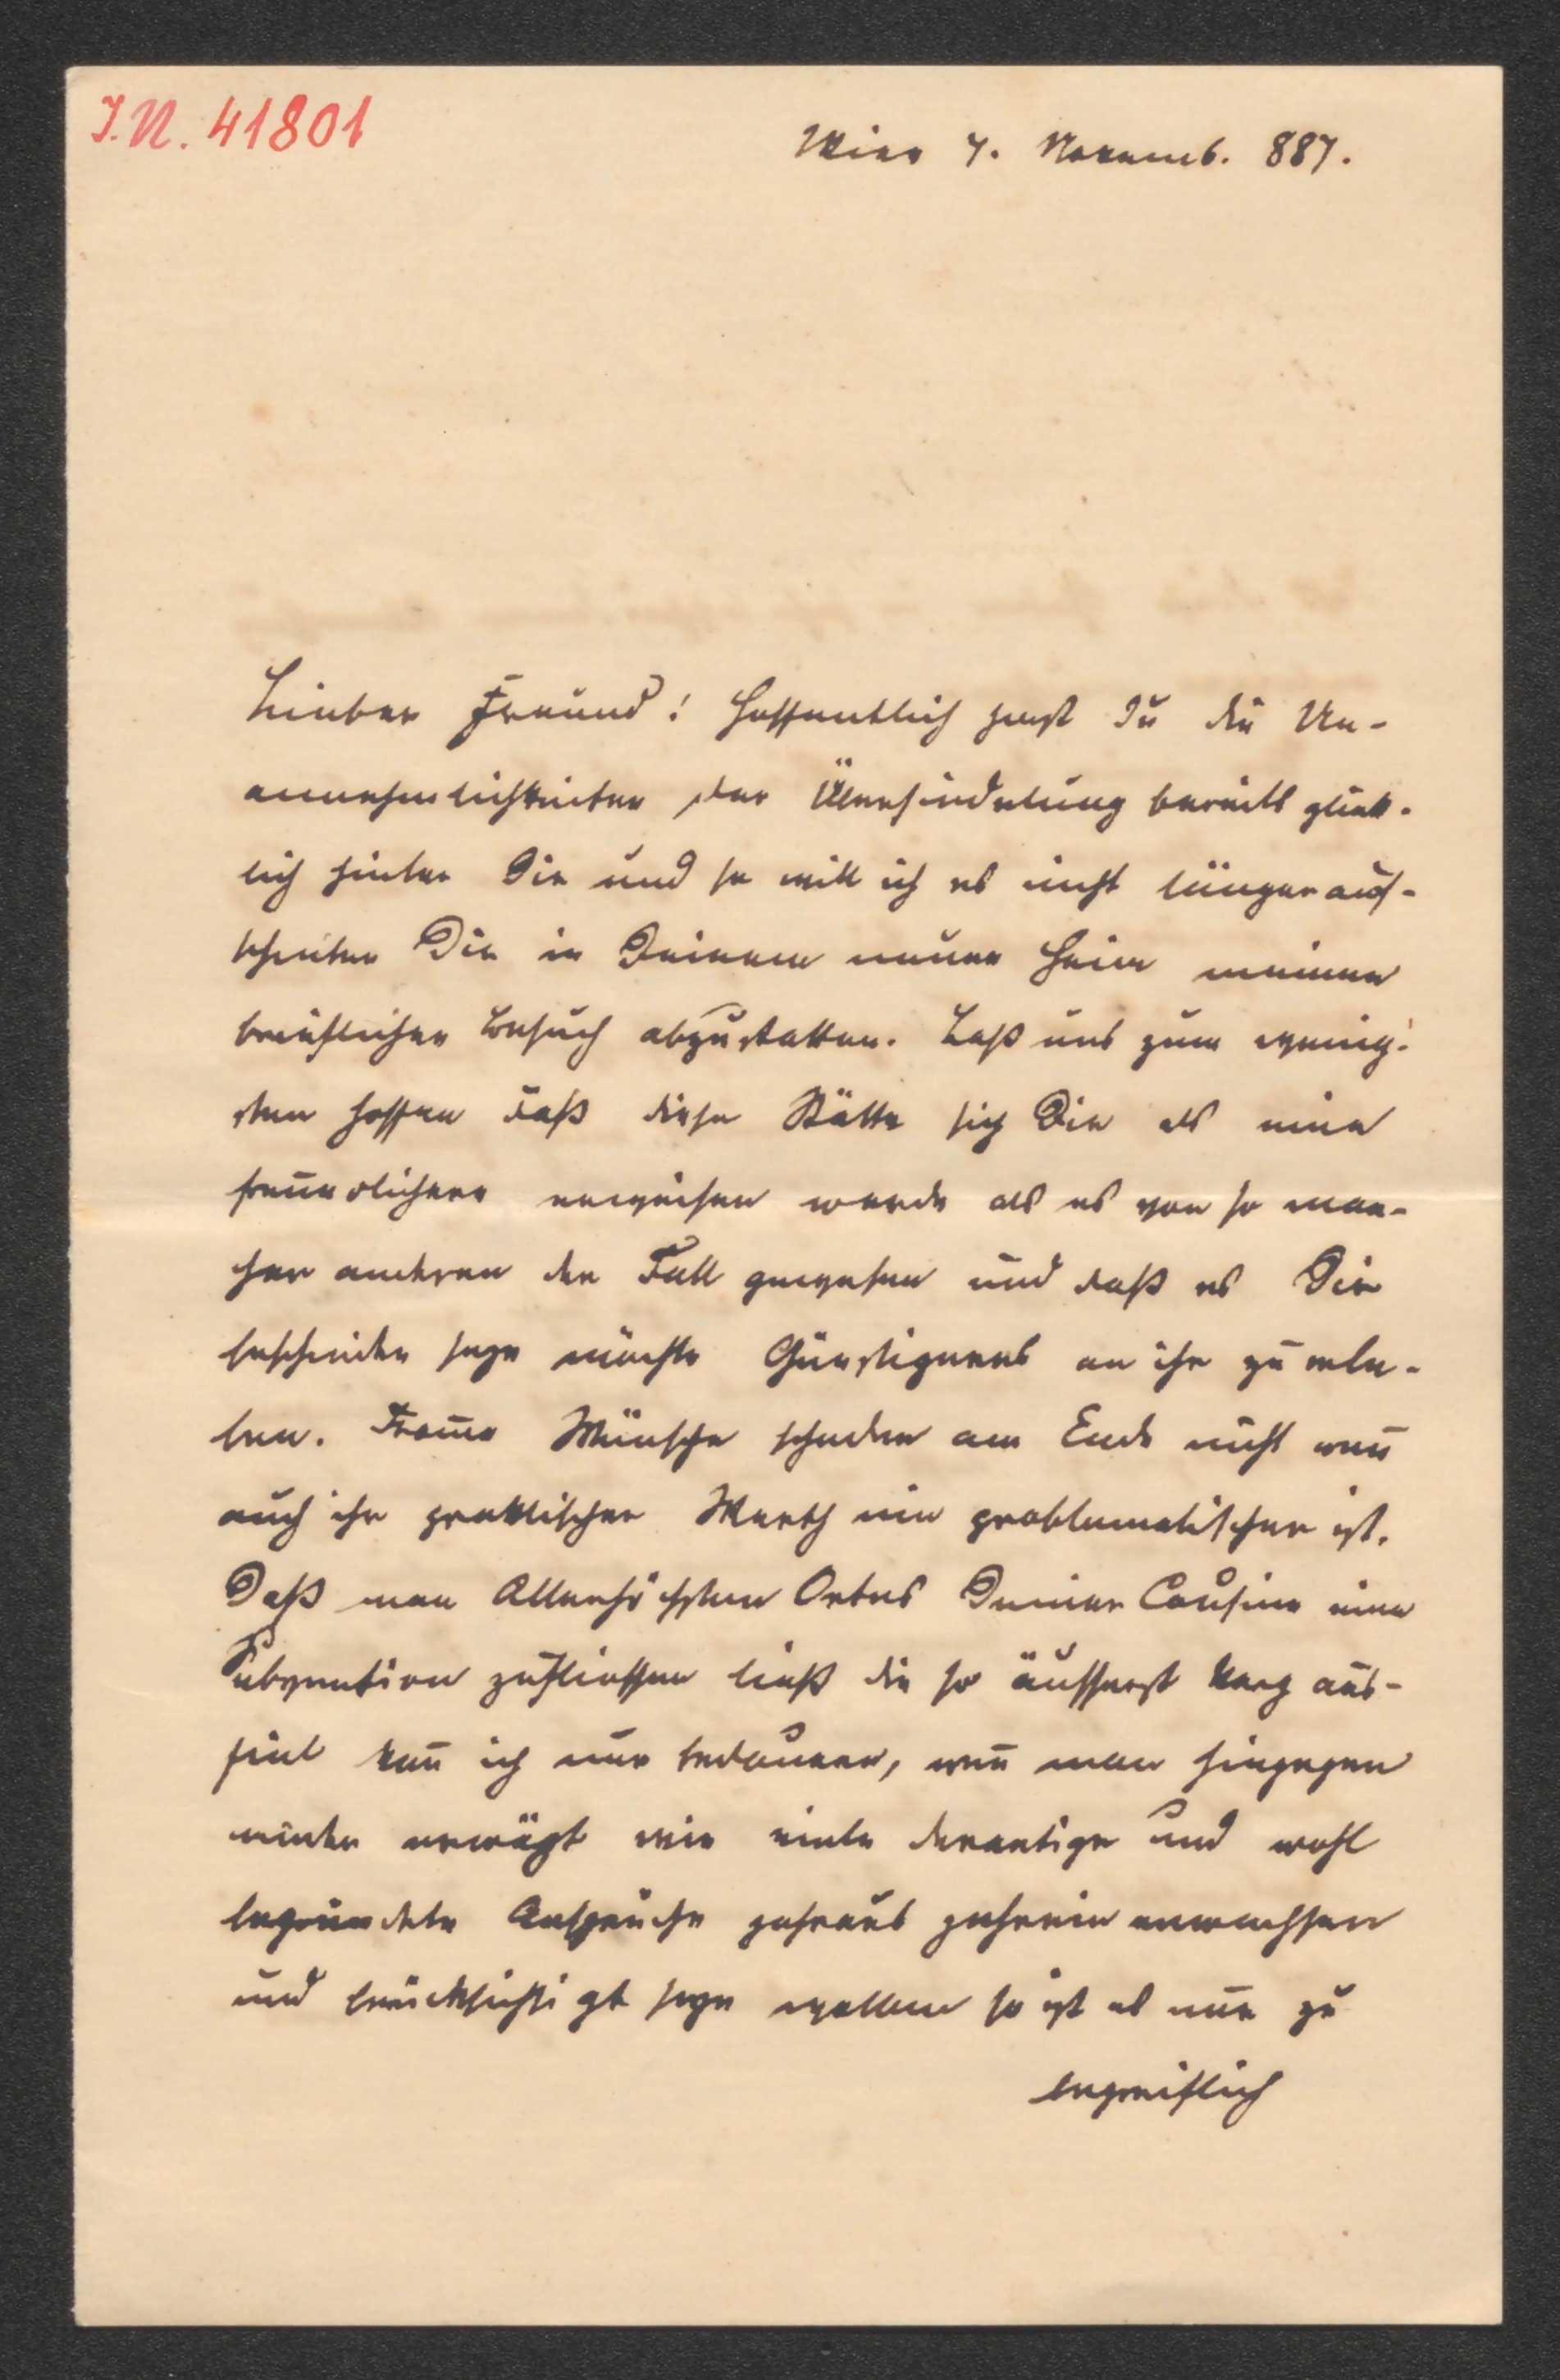 I.N. 41801
Wien 7. Novemb. 887.
Lieber Freund! Hoffentlich hast Du die Un-
annehmlichkeiten der Übersiedelung bereits glück-
lich hinter Dir und so will ich es nicht länger auf-
schieben Dir in Deinem neuen Heim meinen
brieflichen Besuch abzustatten. Laß uns zum wenig-
sten hoffen daß diese Stätte sich Dir als eine
freundlichere erweisen werde als es von so man-
cher anderen der Fall gewesen und daß es Dir
beschieden seyn möchte Günstigeres an ihr zu erle-
ben. Fromme Wünsche schaden am Ende nicht wenn̄
auch ihr praktischer Werth ein problematischer ist.
Daß man Allerhöchsten Ortes Deiner Cousine eine
Subvention zufliessen ließ die so äusserst karg aus-
fiel kan̄ ich nur bedauern, wen̄ man hingegen
wieder erwägt wie viele derartige und wohl
begründete Ansprüche jahraus jahrein erwachsen
und berücksichtigt seyn wollen so ist es nur zu
begreiflich